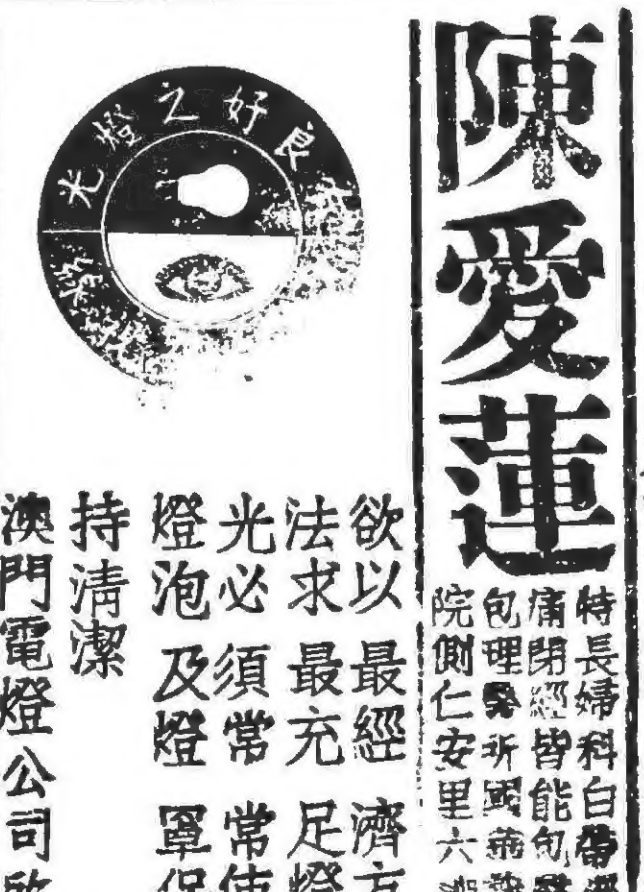 陳愛蓮
特長婦科白帶
痛閉經皆能包
包理
院側仁安里六
良好之燈光
欲以最經濟方
法求最充足燈
光必須常常使
燈泡及燈罩保
持清潔
澳門電燈公司啟